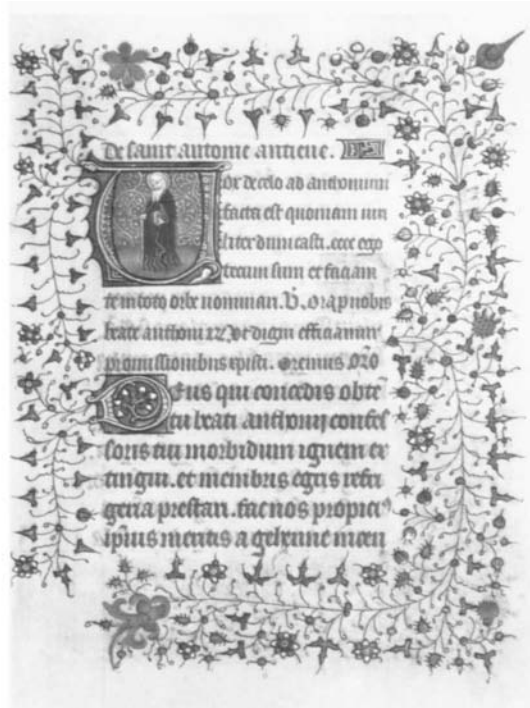 De saint antoine antiene.
Vox de celo ad anthonium
facta est quoniam uiri
liter dimicasti. ecce ego
tecum sum et faciam
te in toto orbe nominari. V. Ora p nobis
beate anthoni Vt digni efficiamur
promissionibus xpisti. Oremus Oro
Deus qui concedis obte
tu beati anthonij confes
soris tui morbidum ignem ex
tingui. et membris egris refri
geria prestari. fac nos propici
ipius mentis a gehenne incen